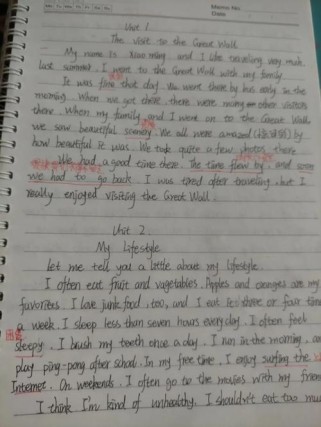 Memo No.
Date
Unit 1.
The visit to the Great Wall
My name is and I like traveling very much.
Last summer, I went to the Great Wall with my family.
It was fine that day. We went there by bus early in the
morning. When we got there there were many other visitors
there. When my family and I went on to the Great Wall
we saw beautiful scenery. We all were amazed by
how beautiful it was. We took quite a few photos there.
We had a good time there. The time flew by, and soon
we had to go back. I was tired after traveling, but I
really enjoyed visiting the Great Wall.
Unit 2.
My lifestyle
Let me tell you a little about my lifestyle.
I often eat fruit and vegetables. Apples and oranges are my
favorites. I love junk food, too, and I eat it three or four time
a week. I sleep less than seven hours every day. I often feel
困倦
sleepy. I brush my teeth once a day. I run in the morning, an
play ping-pong after school. In my free time, I enjoy surfing the
Internet. On weekends, I often go to the movies with my frien
I think I'm kind of unhealthy. I shouldn't eat too mu